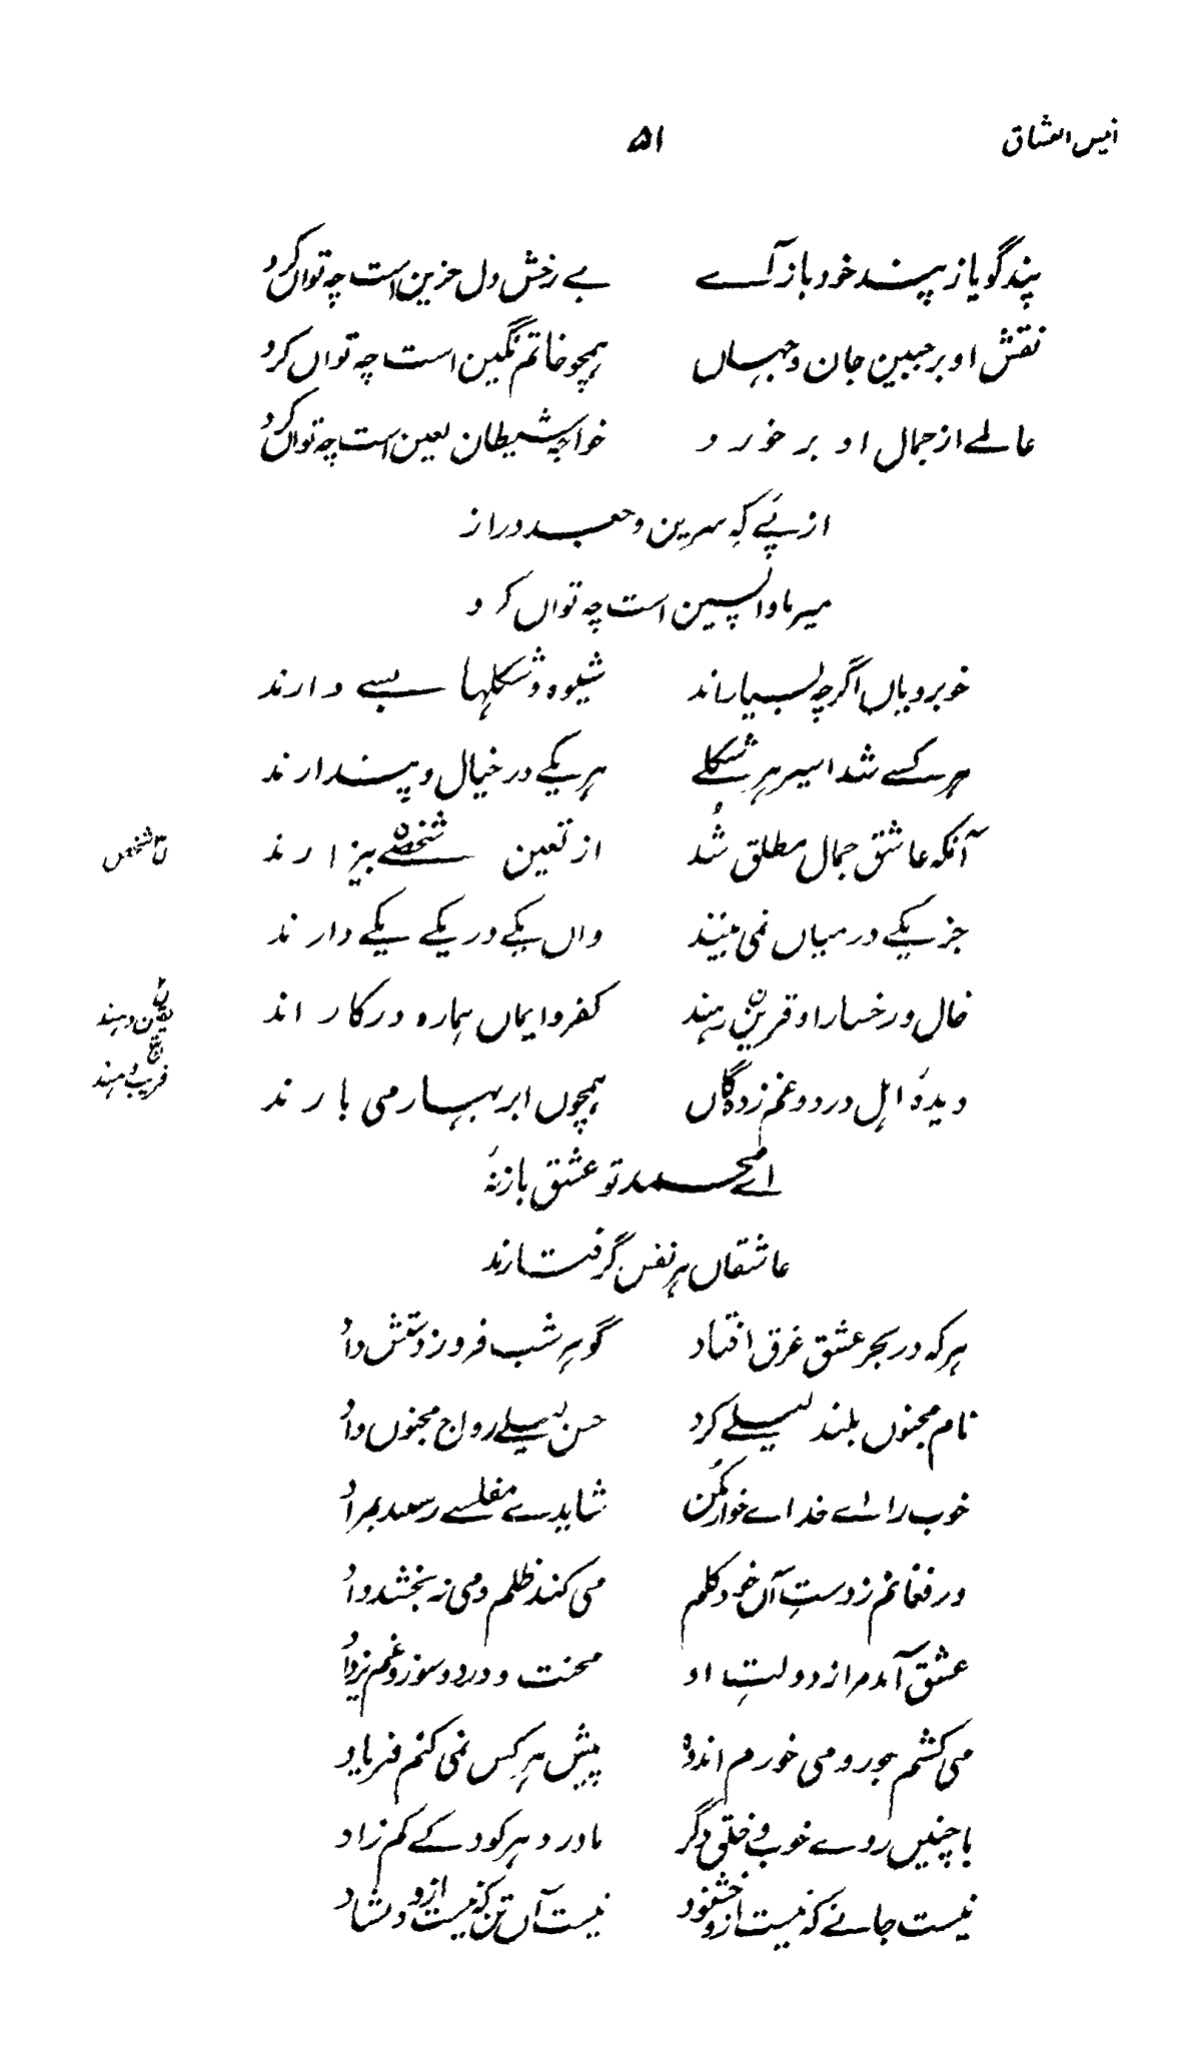 انیس العشاق ۵۱
پند گویا ز پند خود باز آے بے رخش دل حزین است چہ تواں کرد
نقش او بر جبین جان و جہاں ہمچو خاتم نگین است چہ تواں کرد
عالمے از جمال او بر خورد خواجہ شیطان لعین است چہ تواں کرد
از پے کہ سرین و جعد دراز
میر ما واپسین است چہ تواں کرد
خوبرویاں اگرچہ بسیار اند شیوہ و شکلہا بسے دارند
ہر کسے شد اسیر ہر شکلے ہر یکے در خیال و پندارند
آنکہ عاشق جمال مطلق شُد از تعین شخصے بیزارند
تا تشخص
جز یکے درمیاں نمی بینند واں یکے در یکے یکے دارند
خال و رخسار او قرین رہند کفر و ایماں ہمارہ درکار اند
یقین دہند
فریب دہند
دیدۂ اہل درد و غم زدگاں ہمچوں ابر بہار می بارند
اے محمد تو عشق باز نۂ
عاشقاں ہر نفس گرفتارند
ہرکہ در بحر عشق غرق افتاد گوہر شب فروز دستش داد
نام مجنوں بلند لیلے کرد حسن لیلے رواج مجنوں داد
خوب را اے خداے خوار مکن شاید ے مفلسے رسد بمراد
در فغانم ز دستِ آں خود کلم می کند ظلم و می نہ بخشد داد
عشق آمد مرا ز دولتِ او محنت و درد و سوز و غم یزداد
می کشم جور و می خورم اندوہ پیش ہر کس نمی کنم فریاد
با چنیں روے خوب و خلقی دگر مادر دہر کودکے کم زاد
نیست جانے کہ نیست ازو خشنود نیست آں تن کہ نیست ازو دلشاد